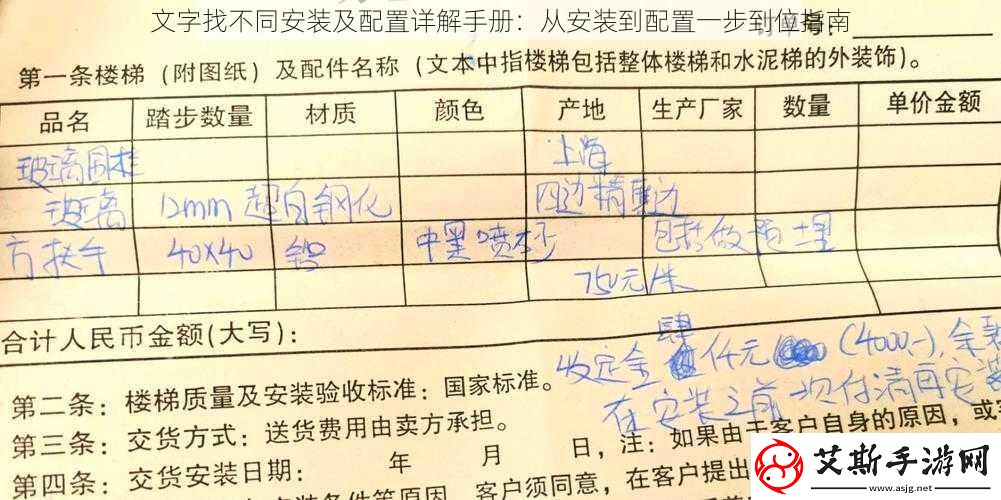 文字找不同安装及配置详解手册：从安装到配置一步到位指南
订单号：
第一条楼梯（附图纸）及配件名称（文本中指楼梯包括整体楼梯和水泥梯的外装饰）。
品名 踏步数量 材质 颜色 产地 生产厂家 数量 单价金额
玻璃围栏 上海
玻璃 12mm 超白钢化 四边精磨边
方扶手 40×40 铝 中黑喷 包括做预埋
750元/米
合计人民币金额(大写)：
收定金肆仟元 (4000-)，余
在安装之前一次付清再安装
第二条：楼梯质量及安装验收标准：国家标准。
第三条：交货方式：送货费用由卖方承担。
第四条：交货安装日期： 年 月 日，注：如果由于客户自身的原因，或
装条件等原因，客户须同意，在客户提出
艾斯手游网
www.asjg.net